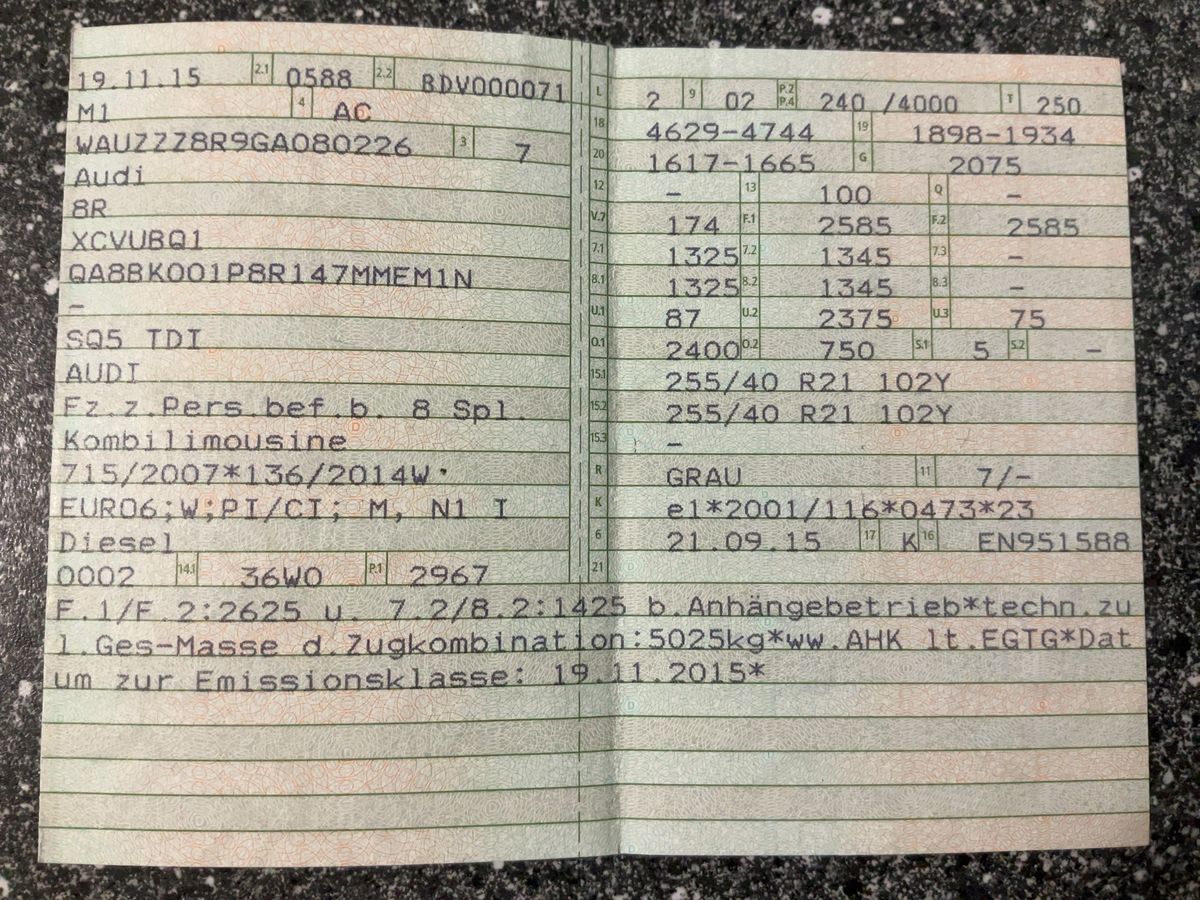 19.11.15 2.1 0588 2.2 BDV000071
M1 4 AC
WAUZZZ8R9GA080226 3 7
Audi
8R
XCVUBQ1
QA8BK001P8R147MMEM1N
-
SQ5 TDI
AUDI
Fz.z.Pers.bef.b. 8 Spl.
Kombilimousine
715/2007*136/2014W
EURO6;W;PI/CI; M, N1 I
Diesel
0002 14.1 36W0 P.1 2967
L 2 9 02 P.2 P.4 240 /4000 T 250
18 4629-4744 19 1898-1934
20 1617-1665 G 2075
12 - 13 100 Q -
V.7 174 F.1 2585 F.2 2585
7.1 1325 7.2 1345 7.3 -
8.1 1325 8.2 1345 8.3 -
U.1 87 U.2 2375 U.3 75
O.1 2400 O.2 750 S.1 5 S.2 -
15.1 255/40 R21 102Y
15.2 255/40 R21 102Y
15.3 -
R GRAU 11 7/-
K e1*2001/116*0473*23
6 21.09.15 17 K 16 EN951588
21
F.1/F.2:2625 u. 7.2/8.2:1425 b.Anhängebetrieb*techn.zu
l.Ges-Masse d.Zugkombination:5025kg*ww.AHK lt.EGTG*Dat
um zur Emissionsklasse: 19.11.2015*